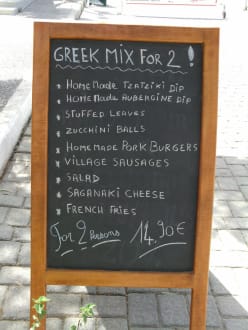 GREEK MIX FOR 2 !
* HOMEMADE TZATZIKI DIP
* HOMEMADE AUBERGINE DIP
* STUFFED LEAVES
* ZUCCHINI BALLS
* HOMEMADE PORK BURGERS
* VILLAGE SAUSAGES
* SALAD
* SAGANAKI CHEESE
* FRENCH FRIES
For 2 Persons 14,90€